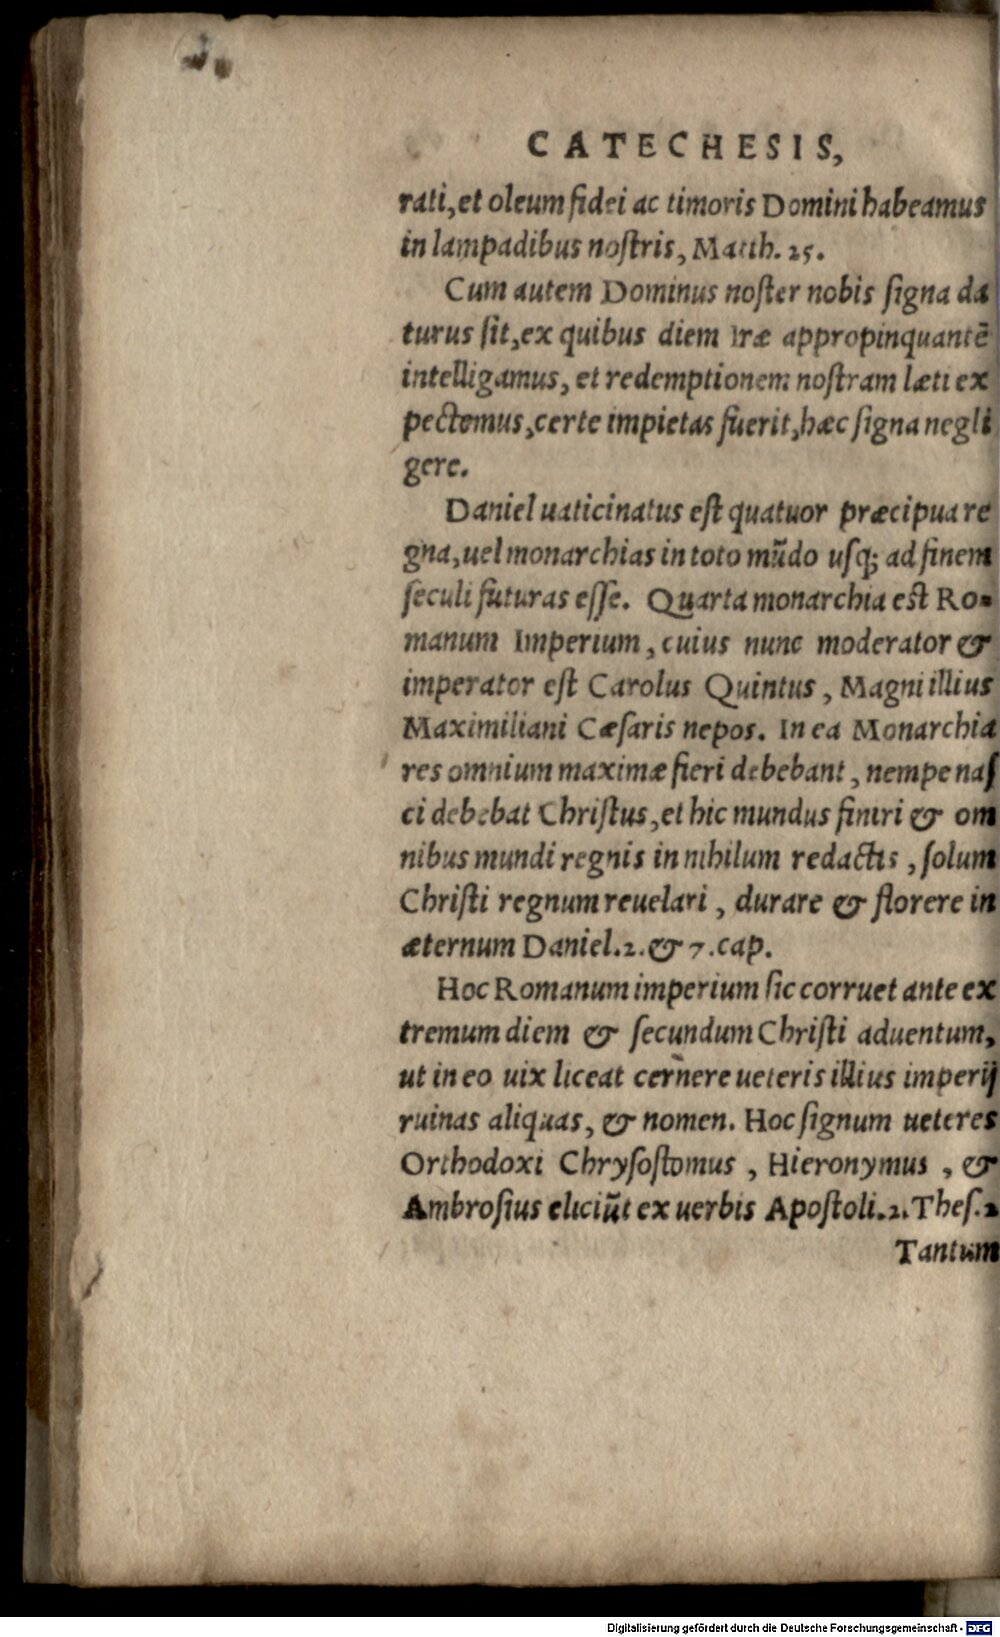 CATECHESIS,
rati, et oleum fidei ac timoris Domini habeamus
in lampadibus nostris, Matth. 25.
Cum autem Dominus noster nobis signa da
turus sit, ex quibus diem Iræ appropinquantẽ
intelligamus, et redemptionem nostram læti ex
pectemus, certe impietas fuerit, hæc signa negli
gere.
Daniel uaticinatus est quatuor præcipua re
gna, uel monarchias in toto mũdo usq; ad finem
seculi futuras esse. Quarta monarchia est Ro-
manum Imperium, cuius nunc moderator &
imperator est Carolus Quintus, Magni illius
Maximiliani Cæsaris nepos. In ea Monarchia
res omnium maximæ fieri debebant, nempe nas
ci debebat Christus, et hic mundus finiri & om
nibus mundi regnis in nihilum redactis, solum
Christi regnum reuelari, durare & florere in
æternum Daniel. 2. & 7. cap.
Hoc Romanum imperium sic corruet ante ex
tremum diem & secundum Christi aduentum,
ut in eo uix liceat cernere ueteris illius imperij
ruinas aliquas, & nomen. Hoc signum ueteres
Orthodoxi Chrysostomus, Hieronymus, &
Ambrosius eliciũt ex uerbis Apostoli. 2. Thes. 2
Tantum
Digitalisierung gefördert durch die Deutsche Forschungsgemeinschaft - DFG